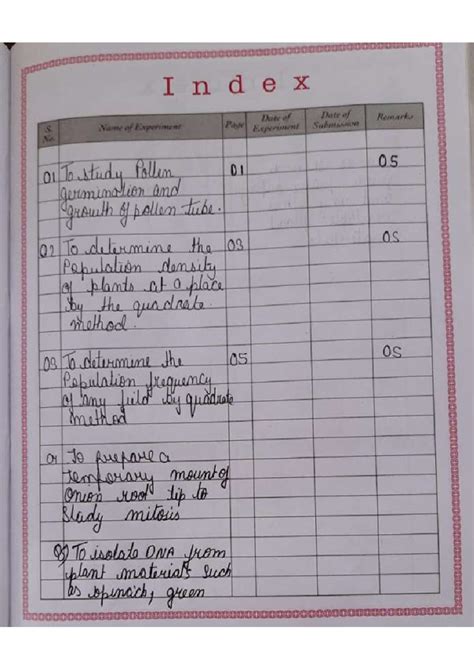 Index
S. No. Name of Experiment Page Date of Experiment Date of Submission Remarks
01 To study Pollen, 01 05
germination and
growth of pollen tube.
02 To determine the 03 05
Population density
of plants at a place
by the quadrate
method.
03 To determine the 05 05
Population frequency
of any field by quadrate
method
04 To prepare a
temporary mount of
onion root tip to
study mitosis
To isolate DNA from
plant materials such
as spinach, green